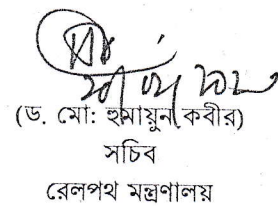 (ড. মো: হুমায়ুন কবীর)
সচিব
রেলপথ মন্ত্রণালয়